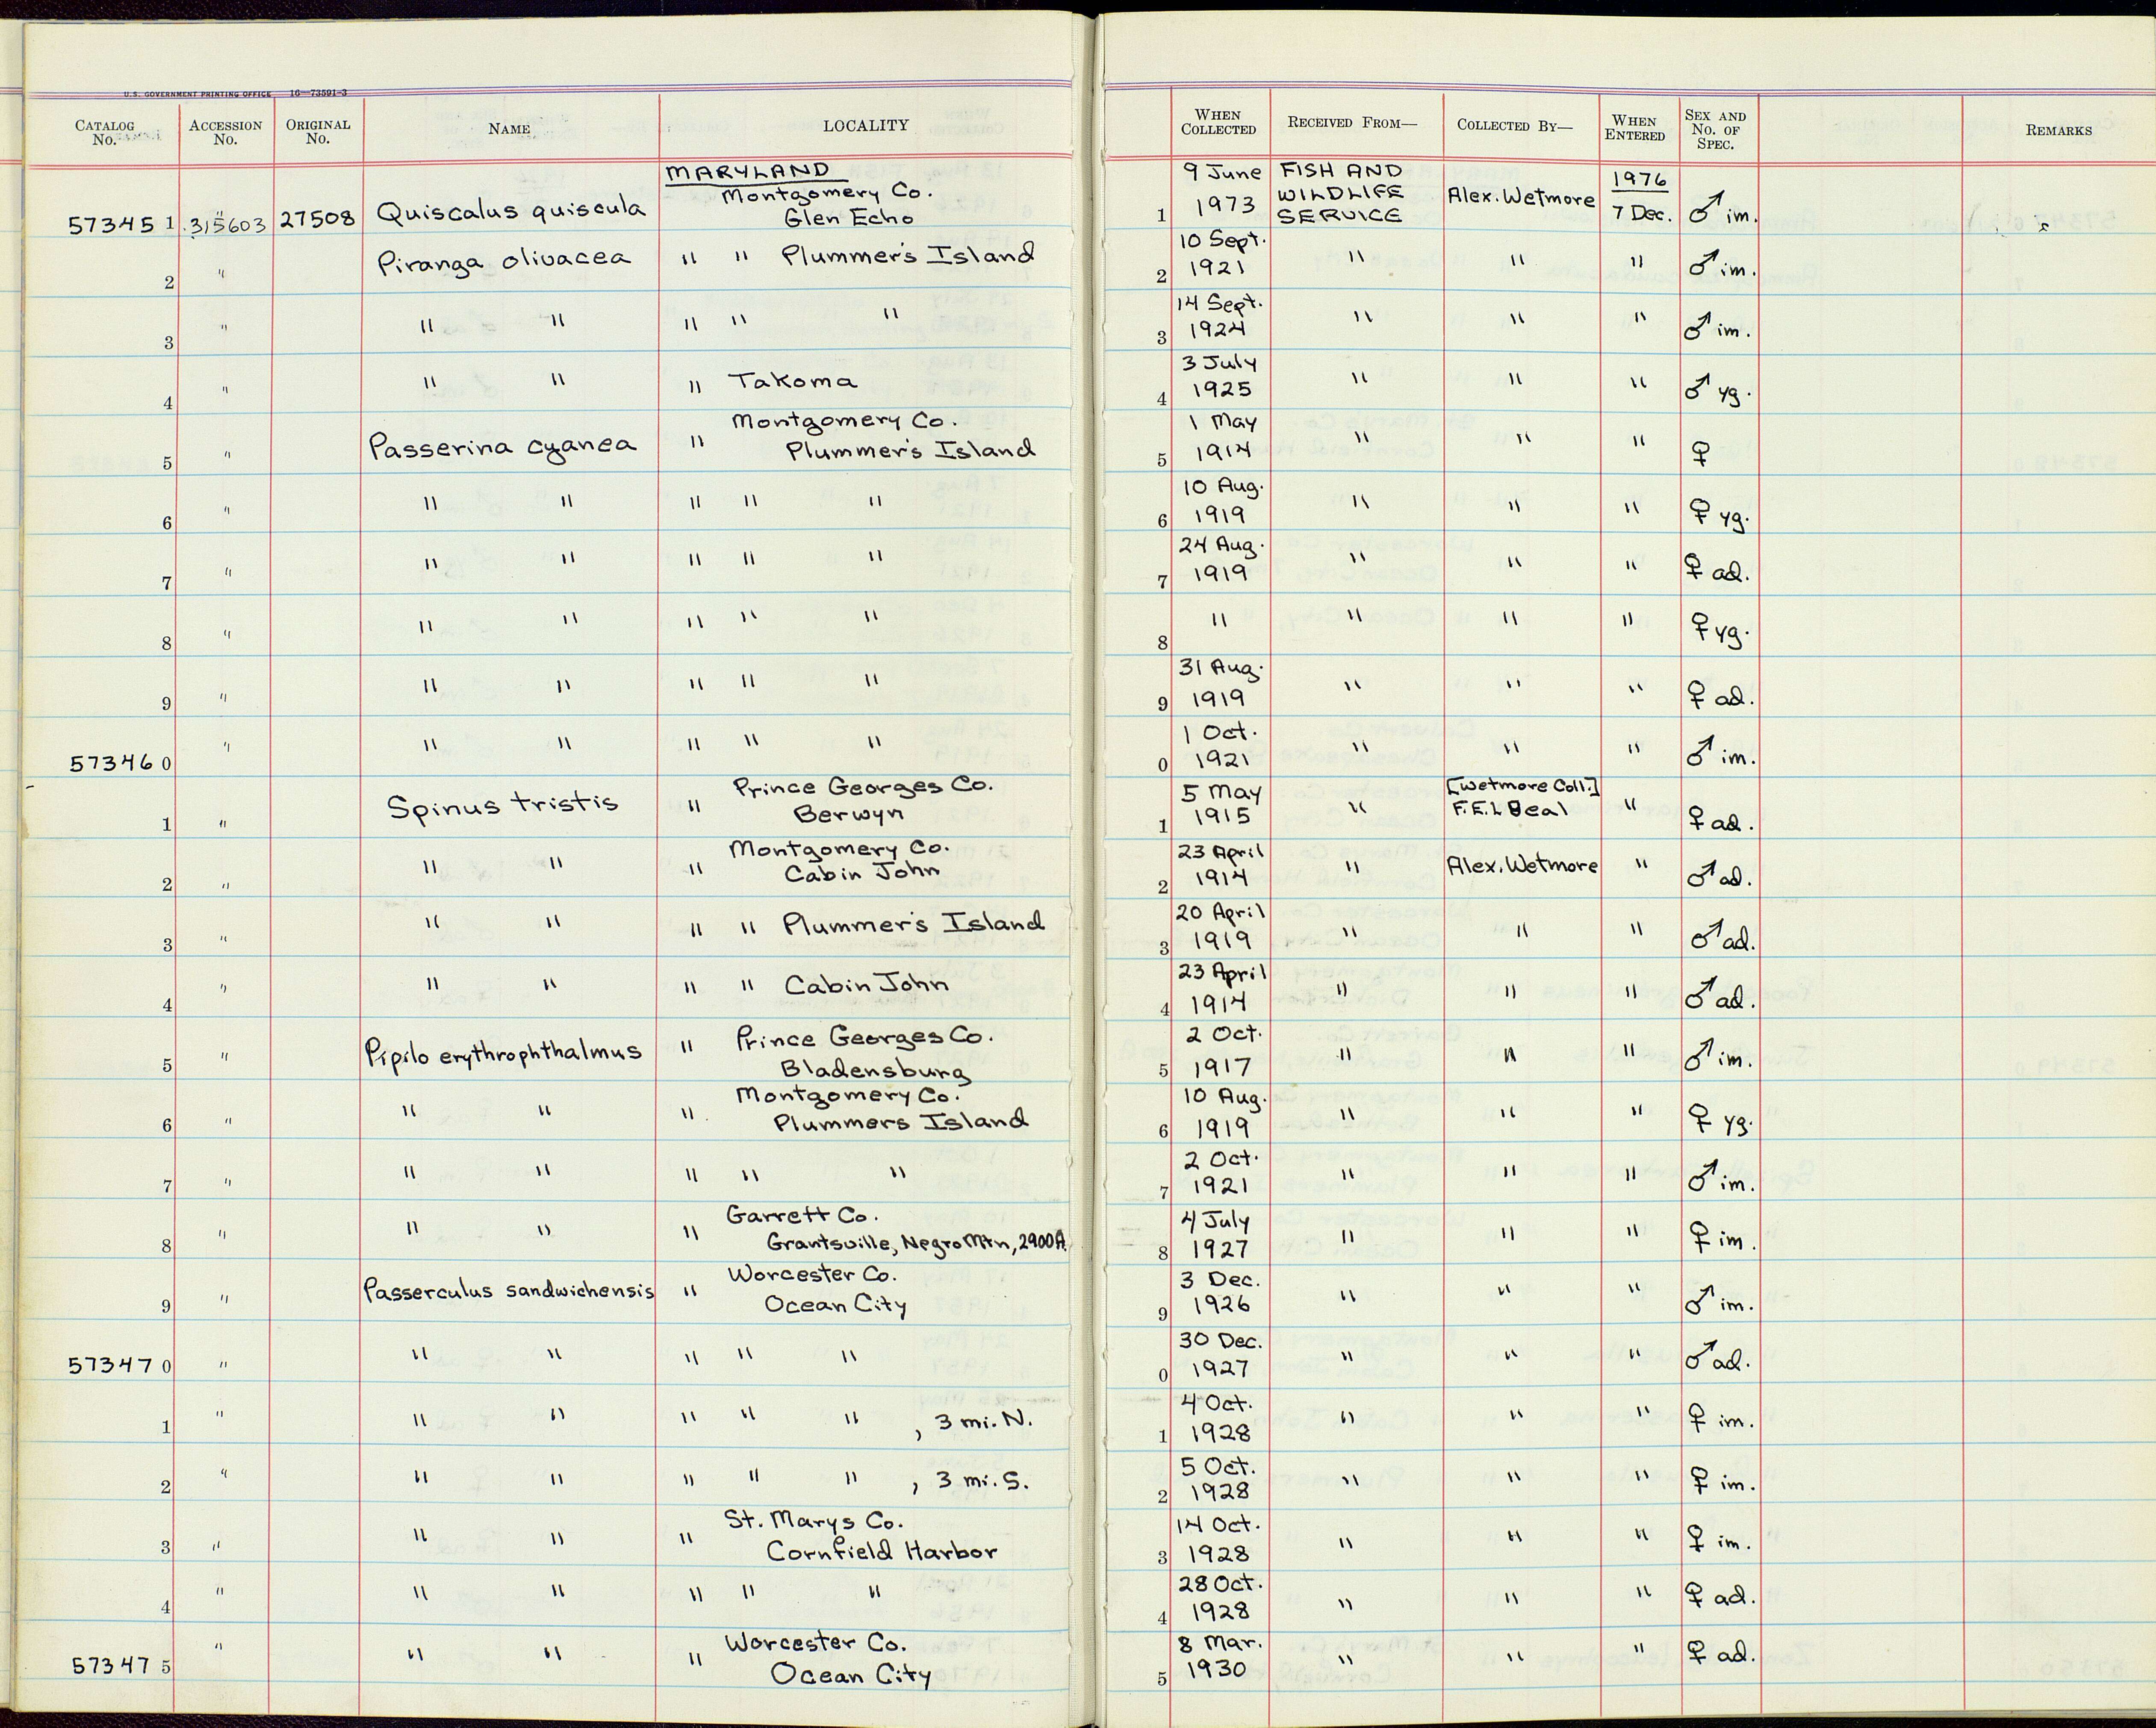 U.S. GOVERNMENT PRINTING OFFICE 16—73591-3
CATALOG No. ACCESSION No. ORIGINAL No. NAME LOCALITY WHEN COLLECTED RECEIVED FROM— COLLECTED BY— WHEN ENTERED SEX AND No. OF SPEC. REMARKS
MARYLAND
573451 315603 27508 Quiscalus quiscula Montgomery Co. Glen Echo 1 9 June 1973 FISH AND WILDLIFE SERVICE Alex. Wetmore 1976 7 Dec. ♂ im.
2 " Piranga olivacea " " Plummer's Island 2 10 Sept. 1921 " " " ♂ im.
3 " " " " " " 3 14 Sept. 1924 " " " ♂ im.
4 " " " " Takoma 4 3 July 1925 " " " ♂ yg.
5 " Passerina cyanea " Montgomery Co. Plummer's Island 5 1 May 1914 " " " ♀
6 " " " " " " 6 10 Aug. 1919 " " " ♀ yg.
7 " " " " " " 7 24 Aug. 1919 " " " ♀ ad.
8 " " " " " " 8 " " " " ♀ yg.
9 " " " " " " 9 31 Aug. 1919 " " " ♀ ad.
573460 " " " " " " 0 1 Oct. 1921 " " " ♂ im.
1 " Spinus tristis " Prince Georges Co. Berwyn 1 5 May 1915 " [Wetmore Coll.] F.E.L Beal " ♀ ad.
2 " " " " Montgomery Co. Cabin John 2 23 April 1914 " Alex. Wetmore " ♂ ad.
3 " " " " " Plummer's Island 3 20 April 1919 " " " ♂ ad.
4 " " " " " Cabin John 4 23 April 1914 " " " ♂ ad.
5 " Pipilo erythrophthalmus " Prince Georges Co. Bladensburg 5 2 Oct. 1917 " " " ♂ im.
6 " " " " Montgomery Co. Plummers Island 6 10 Aug. 1919 " " " ♀ yg.
7 " " " " " " 7 2 Oct. 1921 " " " ♂ im.
8 " " " " Garrett Co. Grantsville, Negro Mtn, 2900 ft. 8 4 July 1927 " " " ♀ im.
9 " Passerculus sandwichensis " Worcester Co. Ocean City 9 3 Dec. 1926 " " " ♂ im.
573470 " " " " " " 0 30 Dec. 1927 " " " ♂ ad.
1 " " " " " " , 3 mi. N. 1 4 Oct. 1928 " " " ♀ im.
2 " " " " " " , 3 mi. S. 2 5 Oct. 1928 " " " ♀ im.
3 " " " " St. Marys Co. Cornfield Harbor 3 14 Oct. 1928 " " " ♀ im.
4 " " " " " " 4 28 Oct. 1928 " " " ♀ ad.
573475 " " " " Worcester Co. Ocean City 5 8 Mar. 1930 " " " ♀ ad.